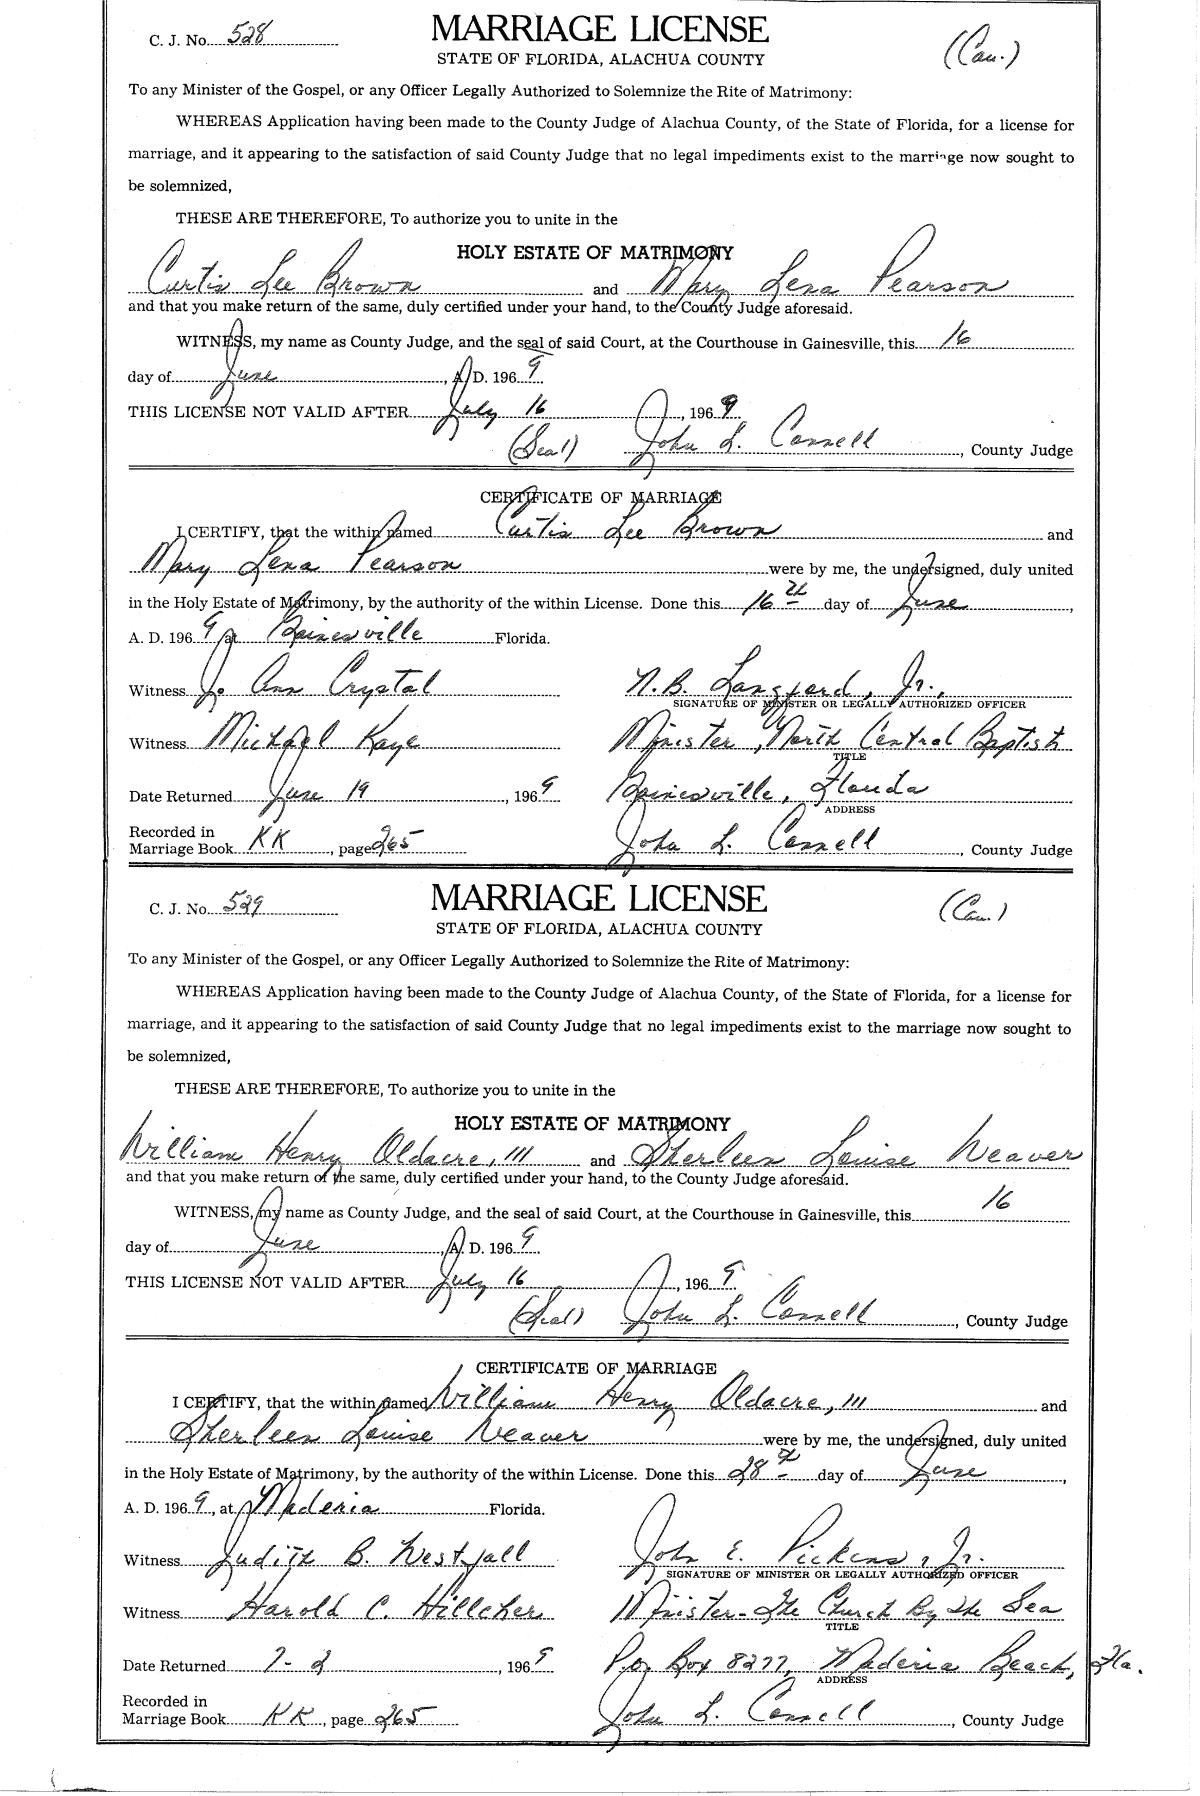 C. J. No. 528
MARRIAGE LICENSE
(Cau.)
STATE OF FLORIDA, ALACHUA COUNTY
To any Minister of the Gospel, or any Officer Legally Authorized to Solemnize the Rite of Matrimony:
WHEREAS Application having been made to the County Judge of Alachua County, of the State of Florida, for a license for
marriage, and it appearing to the satisfaction of said County Judge that no legal impediments exist to the marriage now sought to
be solemnized,
THESE ARE THEREFORE, To authorize you to unite in the
HOLY ESTATE OF MATRIMONY
Curtis Lee Brown and Mary Lena Pearson
and that you make return of the same, duly certified under your hand, to the County Judge aforesaid.
WITNESS, my name as County Judge, and the seal of said Court, at the Courthouse in Gainesville, this 16
day of June, A. D. 1969
THIS LICENSE NOT VALID AFTER July 16, 1969
(Seal) John L. Connell, County Judge
CERTIFICATE OF MARRIAGE
I CERTIFY, that the within named Curtis Lee Brown and
Mary Lena Pearson were by me, the undersigned, duly united
in the Holy Estate of Matrimony, by the authority of the within License. Done this 16th day of June,
A. D. 1969, at Gainesville Florida.
Witness Jo Ann Crystal N. B. Langford, Jr.,
SIGNATURE OF MINISTER OR LEGALLY AUTHORIZED OFFICER
Witness Michael Kaye Minister, North Central Baptist
TITLE
Date Returned June 19, 1969 Gainesville, Florida
ADDRESS
Recorded in
Marriage Book KK, page 265 John L. Connell, County Judge
C. J. No. 529
MARRIAGE LICENSE
(Cau.)
STATE OF FLORIDA, ALACHUA COUNTY
To any Minister of the Gospel, or any Officer Legally Authorized to Solemnize the Rite of Matrimony:
WHEREAS Application having been made to the County Judge of Alachua County, of the State of Florida, for a license for
marriage, and it appearing to the satisfaction of said County Judge that no legal impediments exist to the marriage now sought to
be solemnized,
THESE ARE THEREFORE, To authorize you to unite in the
HOLY ESTATE OF MATRIMONY
William Henry Oldacre, III and Sherleen Louise Weaver
and that you make return of the same, duly certified under your hand, to the County Judge aforesaid.
WITNESS, my name as County Judge, and the seal of said Court, at the Courthouse in Gainesville, this 16
day of June, A. D. 1969
THIS LICENSE NOT VALID AFTER July 16, 1969
(Seal) John L. Connell, County Judge
CERTIFICATE OF MARRIAGE
I CERTIFY, that the within named William Henry Oldacre, III and
Sherleen Louise Weaver were by me, the undersigned, duly united
in the Holy Estate of Matrimony, by the authority of the within License. Done this 28th day of June,
A. D. 1969, at Maderia Florida.
Witness Judith B. Westfall John E. Pickens, Jr.
SIGNATURE OF MINISTER OR LEGALLY AUTHORIZED OFFICER
Witness Harold C. Hillcher Minister-The Church By The Sea
TITLE
Date Returned 7-2, 1969 P.O. Box 8277, Maderia Beach, Fla.
ADDRESS
Recorded in
Marriage Book KK, page 265 John L. Connell, County Judge